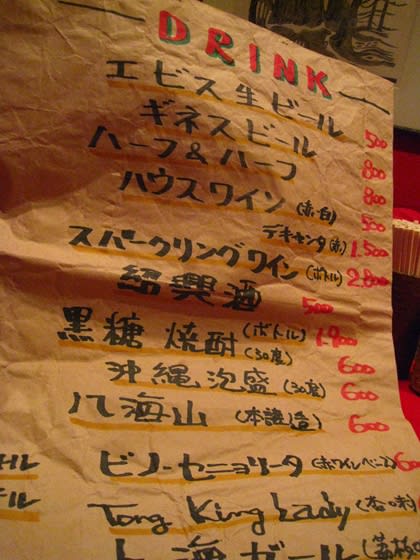 DRINK
エビス生ビール 500
ギネスビール 800
ハーフ&ハーフ 800
ハウスワイン (赤・白) 500
デキャンタ(赤) 1.500
スパークリングワイン (ボトル) 2.800
紹興酒 500
(ボトル) 1.900
黒糖焼酎 (30度) 600
沖縄泡盛 (30度) 600
八海山 (本醸造) 600
ビノ・セニョリータ (赤ワインベース) 6
Tong King Lady
上海ガール